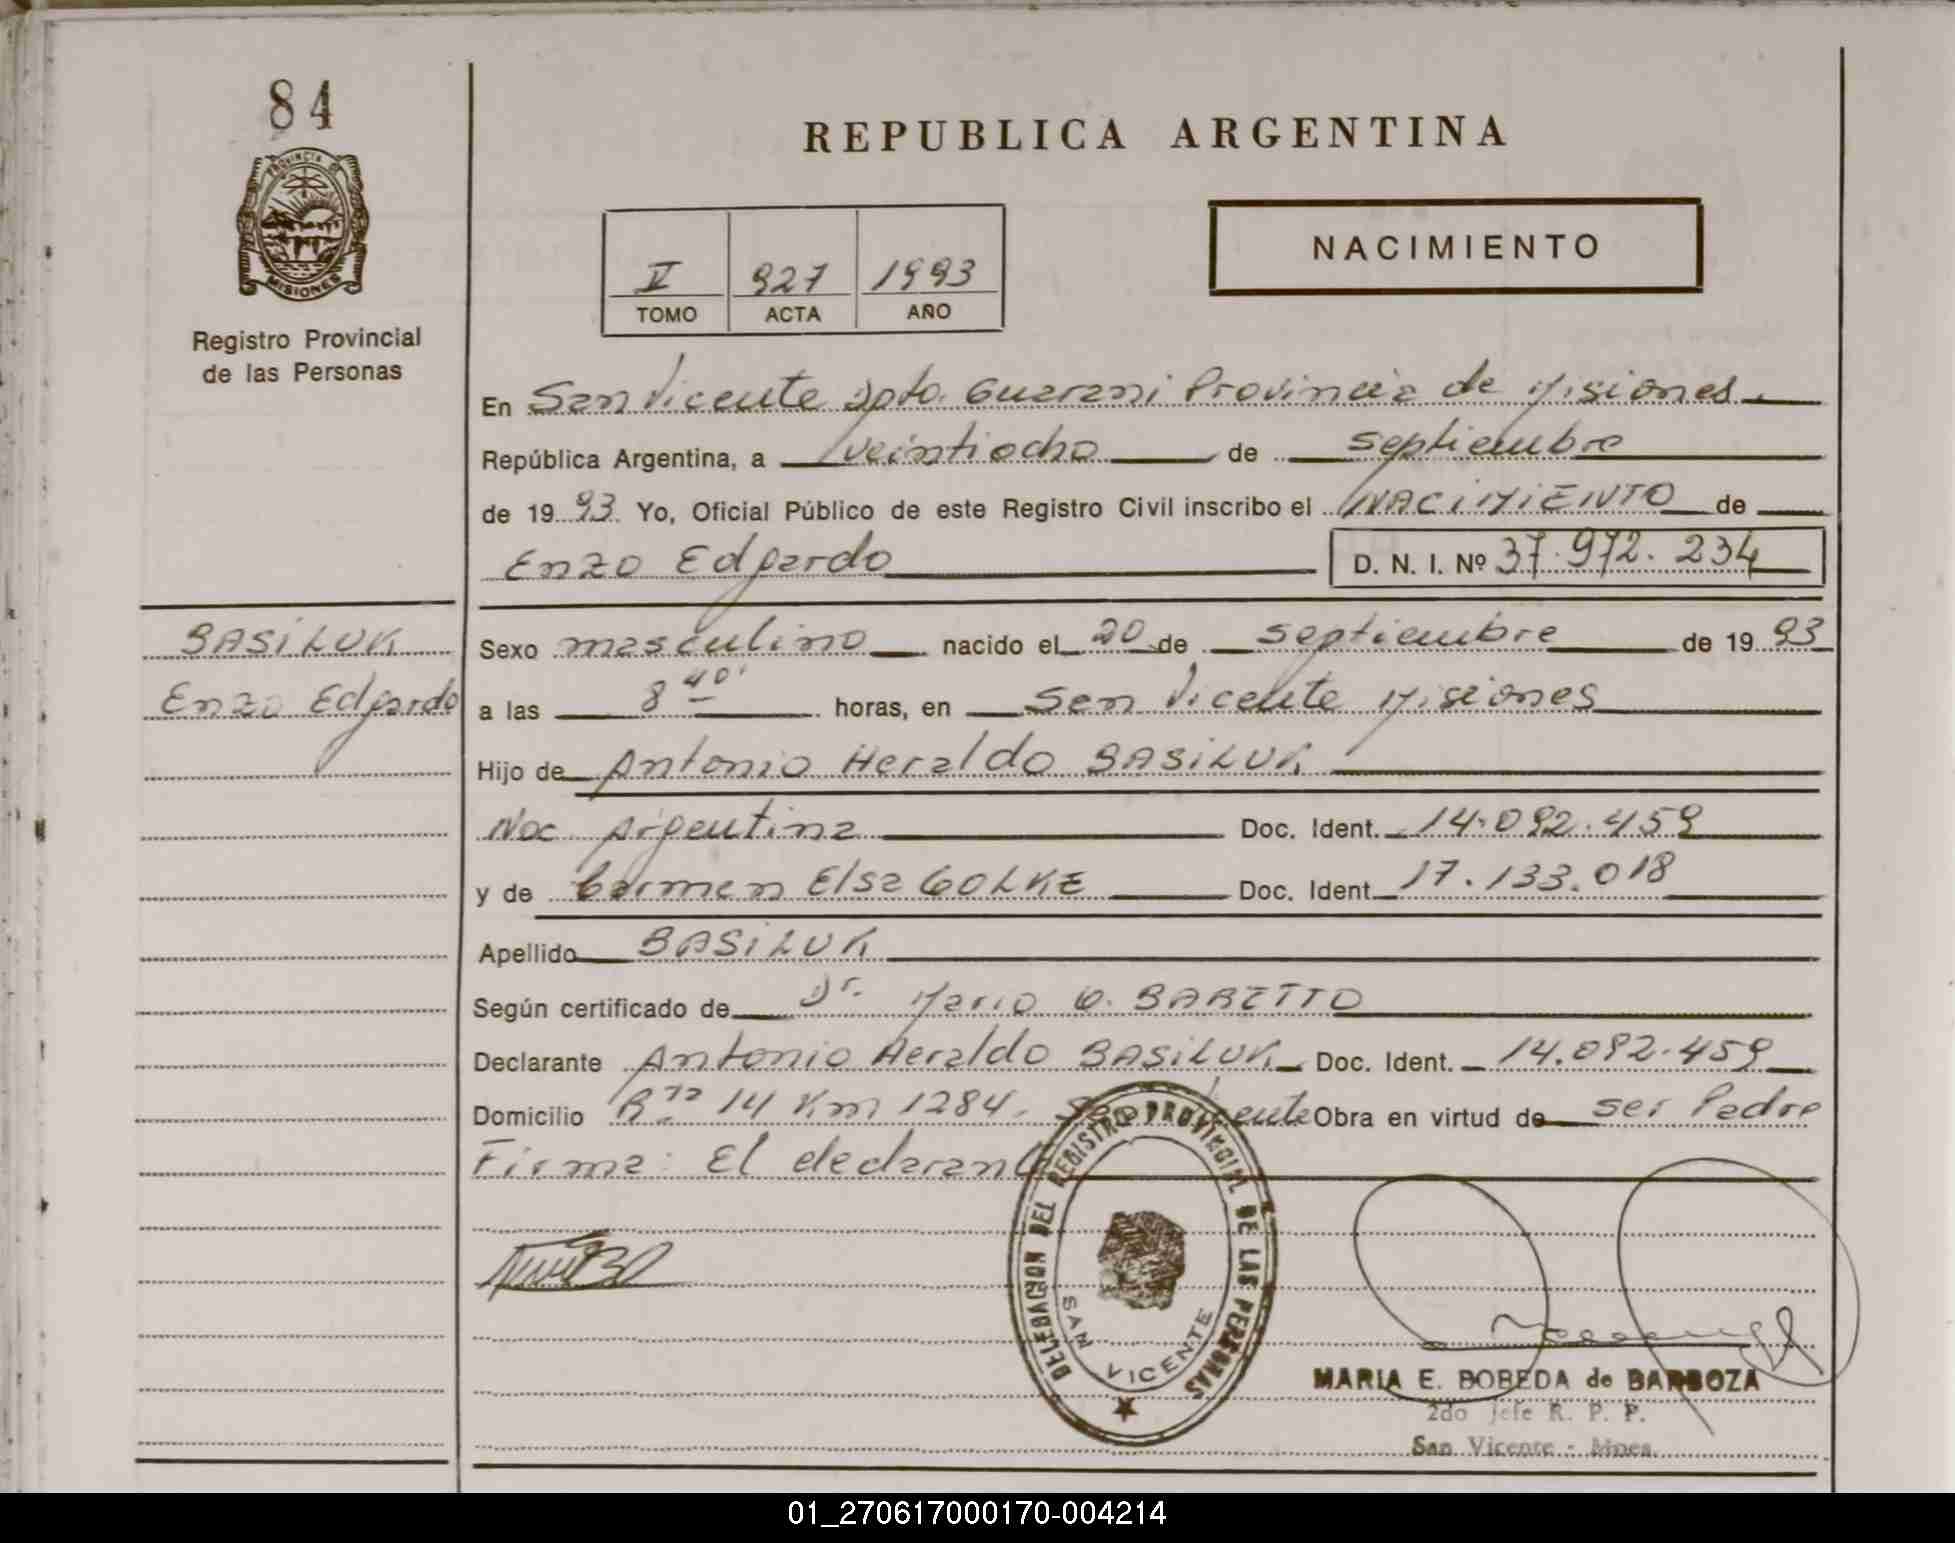 84
PROVINCIA DE
MISIONES
Registro Provincial
de las Personas
REPUBLICA ARGENTINA
NACIMIENTO
V 927 1993
TOMO ACTA AÑO
En San Vicente Dpto. Guarani Provincia de Misiones
República Argentina, a veintiocho de septiembre
de 19 93 Yo, Oficial Público de este Registro Civil inscribo el NACIMIENTO de
Enzo Edgardo D. N. I. Nº 37.972.234
BASILUK
Enzo Edgardo
Sexo masculino nacido el 20 de septiembre de 19 93
a las 8 40' horas, en San Vicente Misiones
Hijo de Antonio Heraldo BASILUK
Nac. Argentina Doc. Ident. 14.092.459
y de Carmen Elsa GOLKE Doc. Ident. 17.133.018
Apellido BASILUK
Según certificado de Dr. Mario BARETTO
Declarante Antonio Heraldo BASILUK Doc. Ident. 14.092.459
Domicilio R 14 Km 1284. San Vicente Obra en virtud de ser Padre
Firma: El declarante
DELEGACION DEL REGISTRO PROVINCIAL DE LAS PERSONAS
SAN VICENTE
MARIA E. BOBEDA de BARBOZA
2do Jefe R. P. P.
San Vicente - Mnes.
01_270617000170-004214